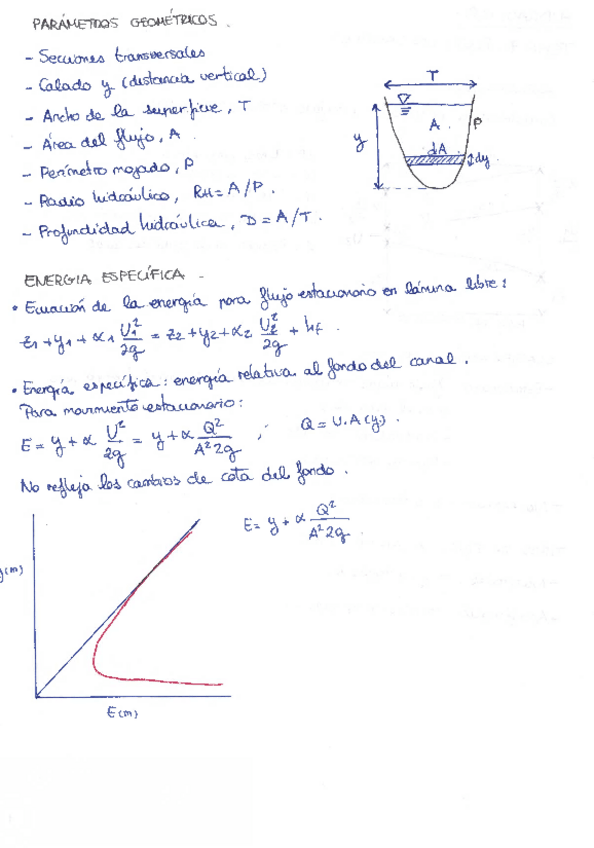 PARÁMETROS GEOMÉTRICOS.
- Secciones transversales
- Calado y (distancia vertical)
- Ancho de la superficie, T
- Área del flujo, A.
- Perímetro mojado, P
- Radio hidráulico, RH = A/P.
- Profundidad hidráulica, D = A/T.
T
y
A
P
dA
dy
ENERGIA ESPECÍFICA -
• Ecuación de la energía para flujo estacionario en lámina libre:
z1 + y1 + α1 U1²/2g = z2 + y2 + α2 U2²/2g + hf.
• Energía específica: energía relativa al fondo del canal.
Para movimiento estacionario:
E = y + α U²/2g = y + α Q²/A²2g ; Q = U.A(y).
No refleja los cambios de cota del fondo.
E = y + α Q²/A²2g.
y(m)
E(m)